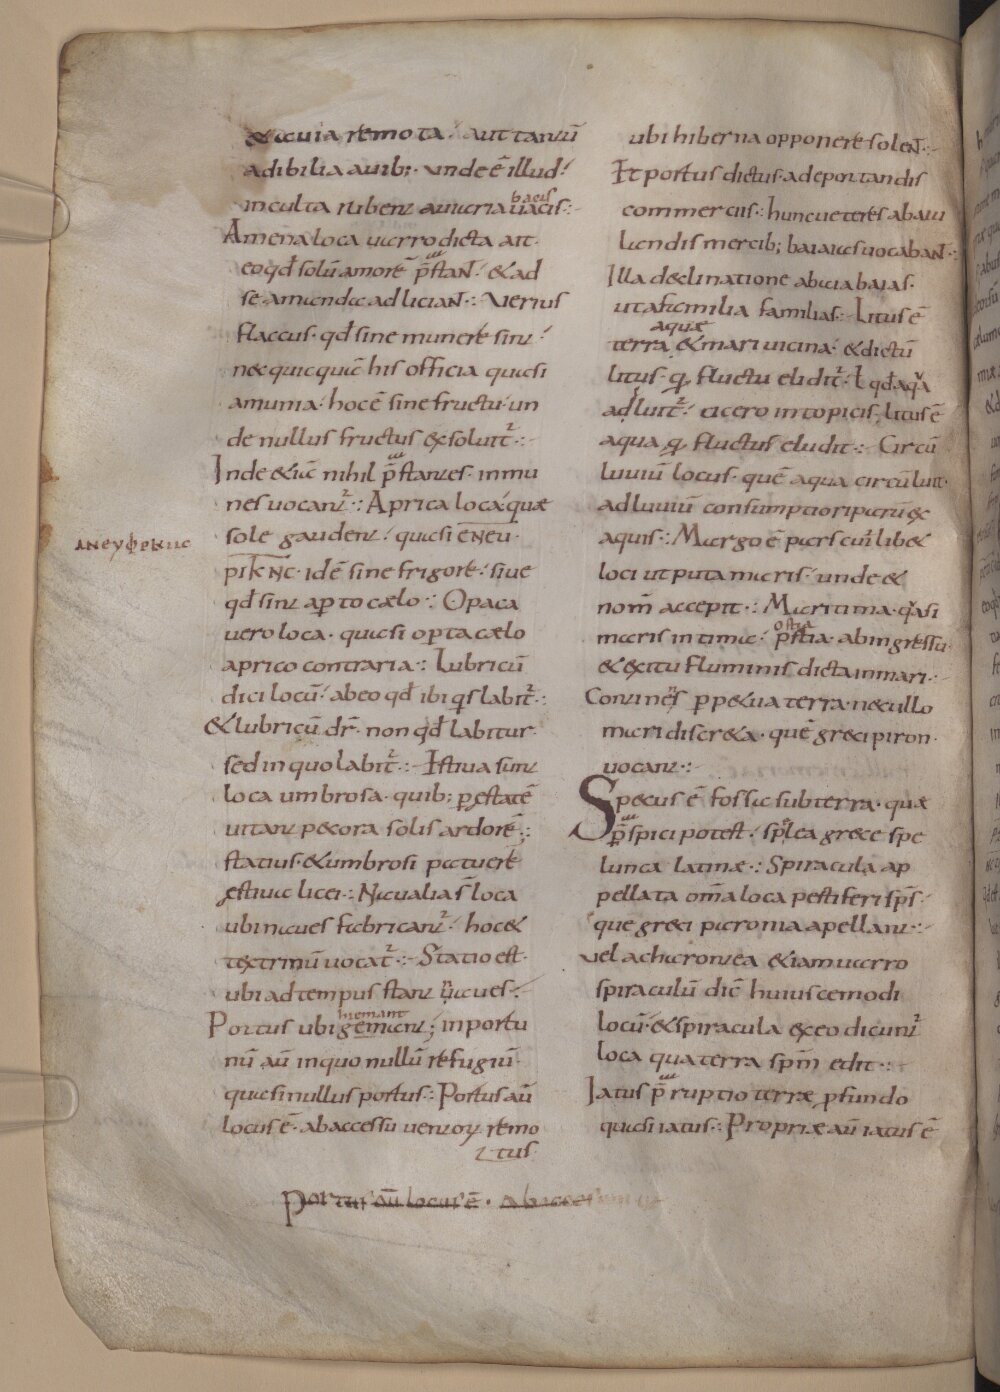 & auia remota· aut tantū
adibilia auib; · unde ē illud·
inculta rubent auiaria uacis
bacis
Amena loca uarro dicta ait·
eo qđ solū amorē p̄stant̄· & ad
se amanda adliciant̄ · Verius
flaccus· qđ sine munere sint·
nec quicquā his officia quasi
amunia· hoc ē sine fructu· un
de nullus fructus exsoluit᷑ ·
Inde & iā nihil p̄stantes· inmu
nes uocant᷑ · Aprica loca quæ
sole gaudent· quasi ἐneu·
pikhc· idē sine frigore· siue
qđ sint aperto cælo · Opaca
uero loca· quasi opta cælo
aprico contraria · Lubricū
dici locū· ab eo qđ ibi qis labit᷑ ·
& lubricū dr̄· non qđ labitur·
sed in quo labit᷑ · Estiua sunt
loca umbrosa· quib; p ęstatē
uitant pecora solis ardorē ;
statius· & umbrosi patuere
ęstiua licei · Naualia s̄ loca
ubi naues fabricant᷑· hoc &
textrinū uocat᷑ · Statio est·
ubi ad tempus stant naues ·
Portus ubi gemiant ; inportu
hiemant
nū aū in quo nullū refugiū·
quasi nullus portus · Portus aū
locus ē· ab accessu uentoꝝ remo
tus·
Portus aū locus ē· ab acces
ubi hiberna opponere solent̄ ·
It portus dictus· a deportandis
commerciis · hunc ueteres a baiu
landis mercib; baias uocabant̄ ·
Illa declinatione a baia baias·
ut a familia familias · Litus ē
terra & mari uicina· & dictū
aquæ
litus· q fluctu elidit᷑· ł qđ aqa
adluit᷑· cicero in topicis, litus ē
aqua q fluctus eludit · Circū
luuiū locus· quē aqua circūluit·
adluuiū consumptio riparū ex
aquis · Margo ē pars cuilib&
loci ut puta maris· unde &
nom̄ accepit · Maritima· qasi
maris intima· p̄stia· ab ingressu
ostia
& exitu fluminis dicta in mari ·
Continēs perp&ua terra· nec ullo
mari discr&a· quē greci piron·
uocant ·
Specus ē fossa subterra· quæ
p̄spici potest· splea grece spe
lunca latinæ · Spiracula ap
pellata om̄a loca pestiferi sp̄s·
que greci paronia apellant ·
uel acharontea &iam uarro
spiraculū dic̄ huiuscemodi
locū· & spiracula ex eo dicunt᷑
loca qua terra spm̄ edit ·
Iatus p̄ruptio terræ pfundo
quasi iatus · Propriæ aū iatus ē
ἀνευφρκης